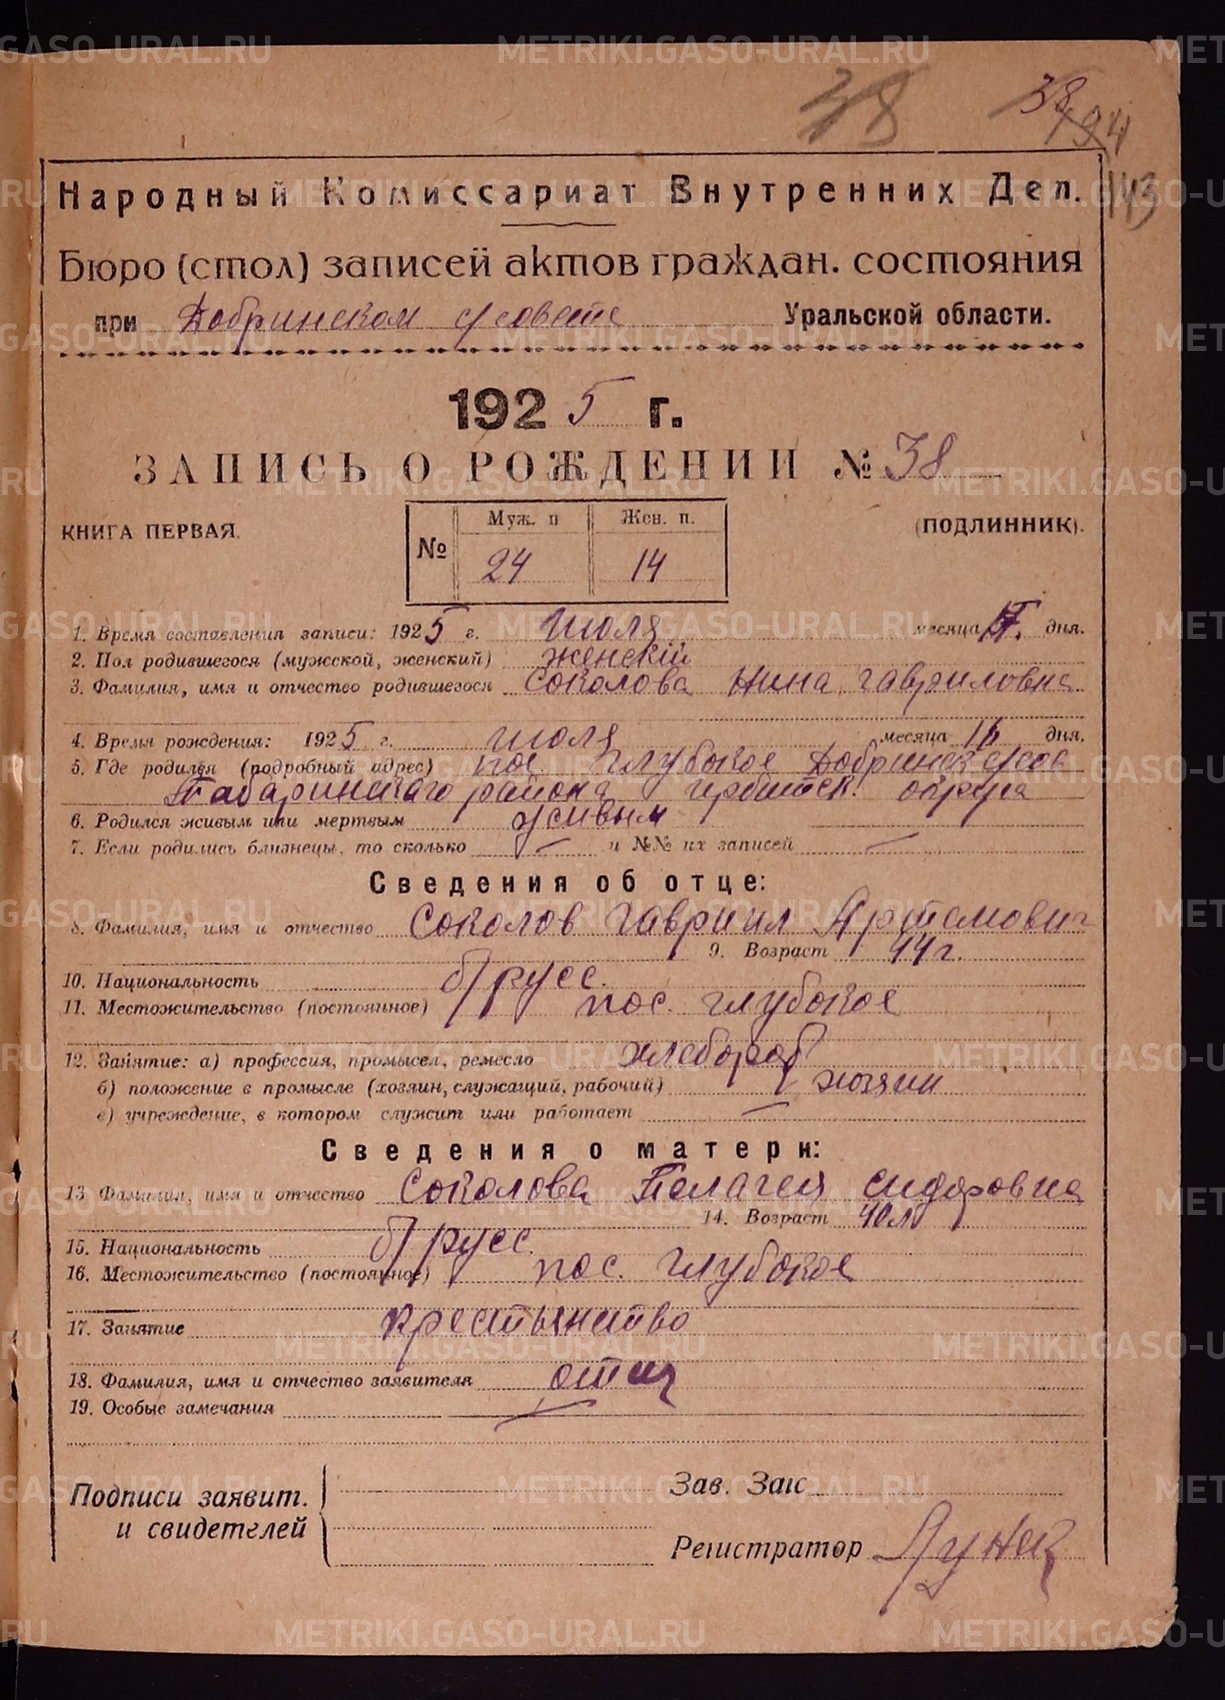 38
38
194
143
Народный Комиссариат Внутренних Дел.
Бюро (стол) записей актов граждан. состояния
при Добринском с/совете Уральской области.
1925 г.
ЗАПИСЬ О РОЖДЕНИИ № 38
КНИГА ПЕРВАЯ.
(ПОДЛИННИК).
№ Муж. п Жен. п.
24 14
1. Время составления записи: 1925 г. Июля месяца дня.
2. Пол родившегося (мужской, женский) женский
3. Фамилия, имя и отчество родившегося Соколова Нина Гавриловна
4. Время рождения: 1925 г. июля месяца 16 дня.
5. Где родился (подробный адрес) пос Глубокое Добринск с/сов
Табаринского района Ирбитск. округа
6. Родился живым или мертвым живым
7. Если родились близнецы, то сколько — и №№ их записей —
Сведения об отце:
8. Фамилия, имя и отчество Соколов Гавриил Артемович
9. Возраст 44 г.
10. Национальность русс.
11. Местожительство (постоянное) пос. Глубокое
12. Занятие: а) профессия, промысел, ремесло хлебороб
б) положение в промысле (хозяин, служащий, рабочий) хозяин
в) учреждение, в котором служит или работает —
Сведения о матери:
13 Фамилия, имя и отчество Соколова Пелагея Сидоровна
14. Возраст 40 л
15. Национальность русс.
16. Местожительство (постоянное) пос. Глубокое
17. Занятие крестьянство
18. Фамилия, имя и отчество заявителя отец
19. Особые замечания —
Подписи заявит.
и свидетелей
Зав. Загс
Регистратор
METRIKI.GASO-URAL.RU